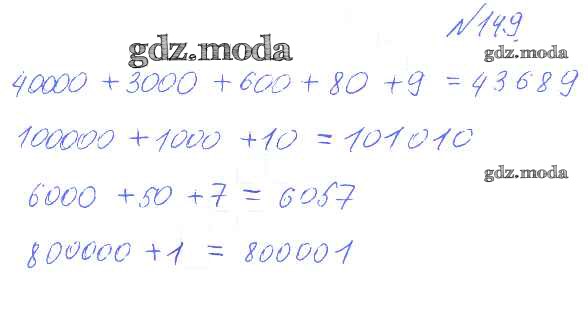 №149
gdz.moda
gdz.moda
40000 + 3000 + 600 + 80 + 9 = 43689
100000 + 1000 + 10 = 101010
gdz.moda
6000 + 50 + 7 = 6057
800000 + 1 = 800001